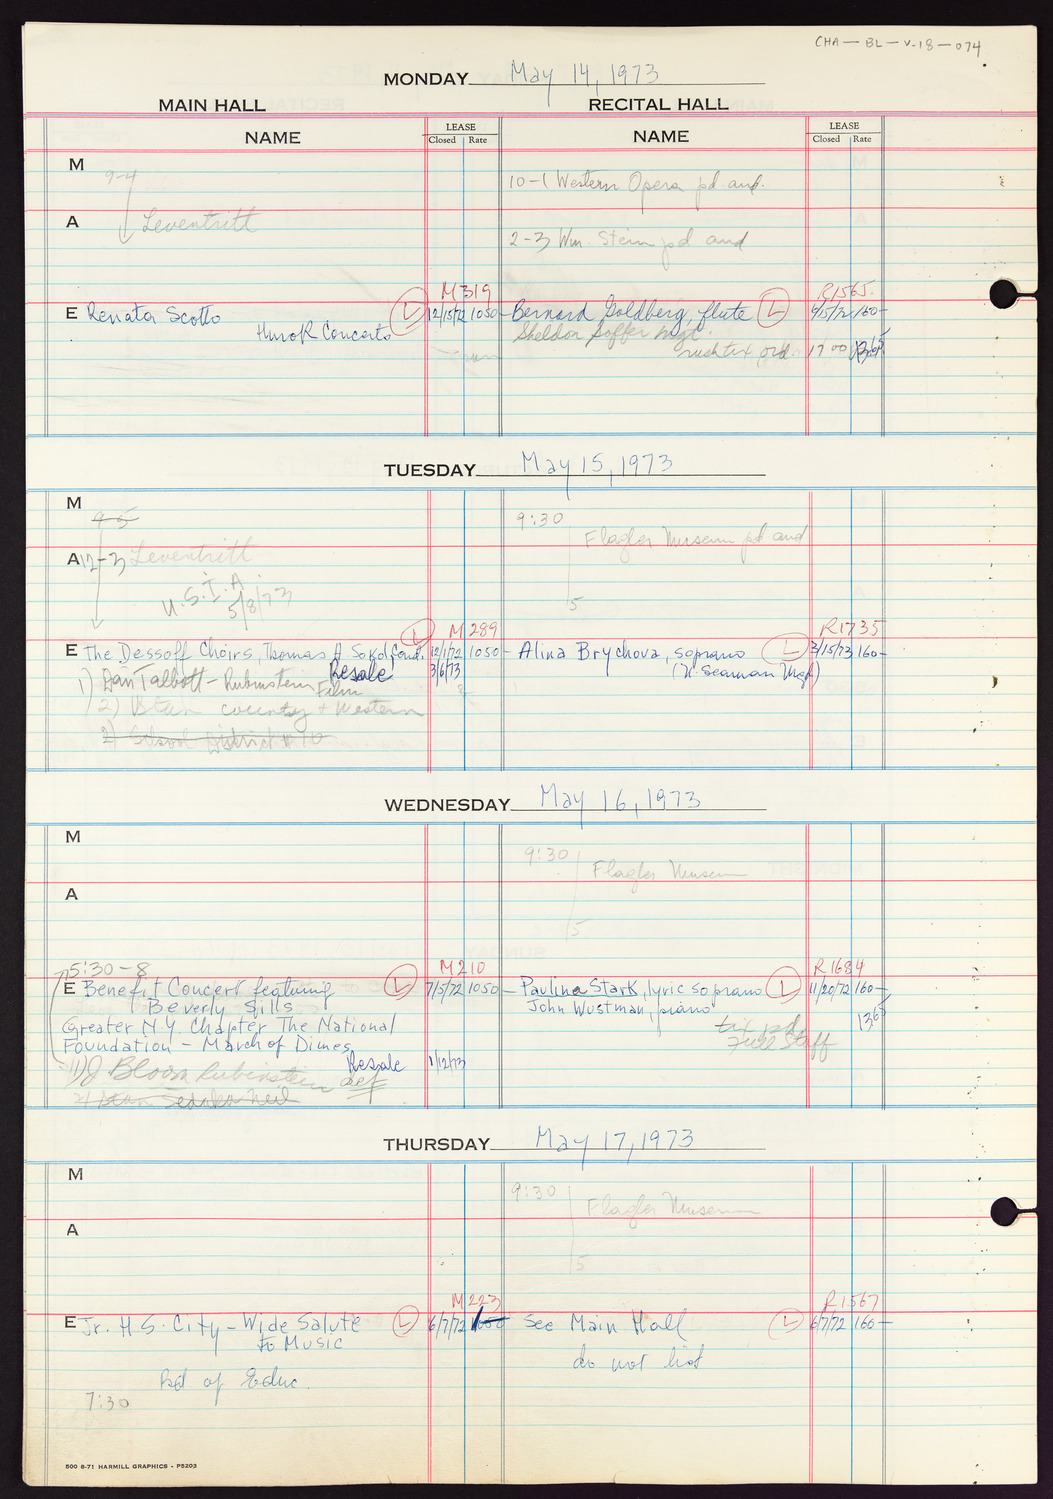 CHA-BL-V-18-074
MONDAY May 14, 1973
MAIN HALL RECITAL HALL
NAME LEASE Closed Rate NAME LEASE Closed Rate
M 9-4
10-1 Western Opera pd and.
A Leventritt
2-3 Wm. Stein pd and
M319 R1565
E Renata Scotto L 12/15/72 1050- Bernard Goldberg, flute L 9/5/72 160-
Hurok Concerts Sheldon Soffer Mgt
pd. 17 00 1365
TUESDAY May 15, 1973
M 9-5 9:30
Flagler Museum pd and
A 12-3 Leventritt
U.S.I.A
5/8/73
5
M289 R1735
E The Dessoff Choirs, Thomas A Sokol cond. L 12/1/72 1050- Alina Brychova, soprano L 3/15/73 160-
Resale 3/6/73 (N. Seaman Mgt)
1) Dan Talbott - Rubinstein Film
2) Stan country + Western
2) School District # 10
WEDNESDAY May 16, 1973
M 9:30
Flagler Museum
A
5
5:30-8 M210 R1684
E Benefit Concert featuring L 7/5/72 1050- Paulina Stark, lyric soprano L 11/20/72 160-
Beverly Sills John Wustman, piano
Greater N Y Chapter The National tix pd 1365
Foundation - March of Dimes Full Staff
Resale 1/12/73
1) J Bloom Rubinstein def
2) Stan Sedaka Neil
THURSDAY May 17, 1973
M 9:30
Flagler Museum
A
5
M223 R1567
E Jr. H S. City-Wide Salute L 6/7/72 See Main Hall L 6/7/72 160-
to Music
do not list
Bd of Educ.
7:30
500 8-71 HARMILL GRAPHICS - P5203